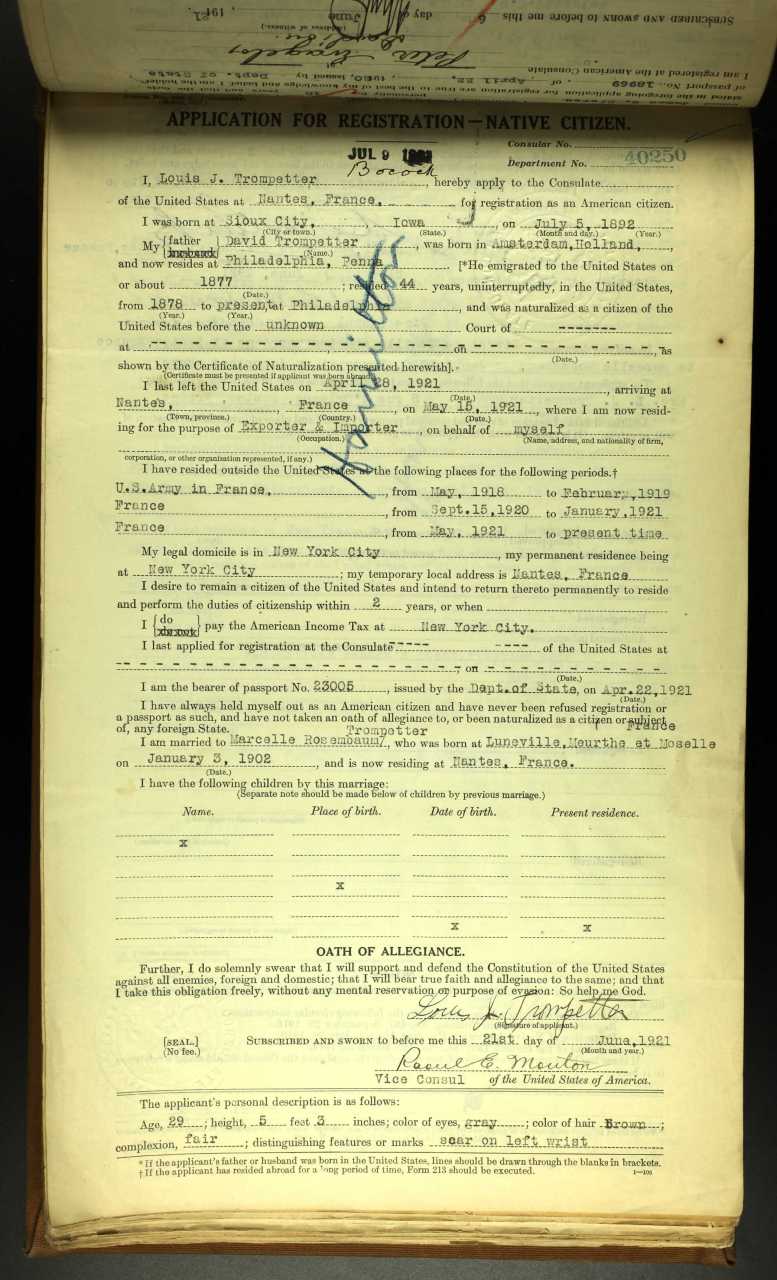 SUBSCRIBED AND SWORN to before me this 6 day of June, 191
(Address of witness.)
Peter
I am registered at the American Consulate
of passport No. 18969, of April 22, 1920, issued by Dept. of State
stated in the foregoing application for registration are true to the best of my knowledge and that I am the holder
APPLICATION FOR REGISTRATION—NATIVE CITIZEN.
JUL 9
Consular No.
Department No. 40250
Bocock
I, Louis J. Trompetter, hereby apply to the Consulate
of the United States at Nantes, France, for registration as an American citizen.
I was born at Sioux City, , Iowa, on July 5, 1892
(City or town.) (State.) (Month and day.) (Year.)
My {father husband} David Trompetter, was born in Amsterdam, Holland,
(Name.)
and now resides at Philadelphia, Penna [*He emigrated to the United States on
or about 1877; resided 44 years, uninterruptedly, in the United States,
(Date.)
from 1878 to present at Philadelphia, and was naturalized as a citizen of the
(Year.) (Year.)
United States before the unknown Court of -------
at - - - - - - - - - - - - - - , - - - - - - - - - - on - - - - - - - - - - - - - -, as
(Date.)
shown by the Certificate of Naturalization presented herewith].
(Certificate must be presented if applicant was born abroad.)
I last left the United States on April 28, 1921, arriving at
(Date.)
Nantes, , France, on May 15, 1921, where I am now resid-
(Town, province.) (Country.) (Date.)
ing for the purpose of Exporter & Importer, on behalf of myself
(Occupation.) (Name, address, and nationality of firm,
corporation, or other organization represented, if any.)
Hamilton
I have resided outside the United States at the following places for the following periods.†
U.S.Army in France, , from May, 1918 to February,1919
France , from Sept.15,1920 to January,1921
France , from May, 1921 to present time
My legal domicile is in New York City, my permanent residence being
at New York City; my temporary local address is Nantes, France
I desire to remain a citizen of the United States and intend to return thereto permanently to reside
and perform the duties of citizenship within 2 years, or when
I {do do not} pay the American Income Tax at New York City.
I last applied for registration at the Consulate ----- ---- of the United States at
- - - - - - - - - - - - - - - - - - - - - - - - -; on - - - - - - - - - - -
(Date.)
I am the bearer of passport No. 23005, issued by the Dept.of State, on Apr.22,1921
(Date.)
I have always held myself out as an American citizen and have never been refused registration or
a passport as such, and have not taken an oath of allegiance to, or been naturalized as a citizen or subject
of, any foreign State. Trompetter France
I am married to Marcelle Rosembaum/, who was born at Luneville,Meurthe et Moselle
on January 3, 1902, and is now residing at Nantes, France.
(Date.)
I have the following children by this marriage:
(Separate note should be made below of children by previous marriage.)
Name. Place of birth. Date of birth. Present residence.
x
x
x x
OATH OF ALLEGIANCE.
Further, I do solemnly swear that I will support and defend the Constitution of the United States
against all enemies, foreign and domestic; that I will bear true faith and allegiance to the same; and that
I take this obligation freely, without any mental reservation or purpose of evasion: So help me God.
Louis J. Trompetter
(Signature of applicant.)
[SEAL.] SUBSCRIBED AND SWORN to before me this 21st day of June,1921
(No fee.) (Month and year.)
Raoul E. Mouton
Vice Consul of the United States of America.
The applicant's personal description is as follows:
Age, 29; height, 5 feet 3 inches; color of eyes, gray; color of hair Brown;
complexion, fair; distinguishing features or marks scar on left wrist
* If the applicant's father or husband was born in the United States, lines should be drawn through the blanks in brackets.
† If the applicant has resided abroad for a long period of time, Form 213 should be executed. 1—108